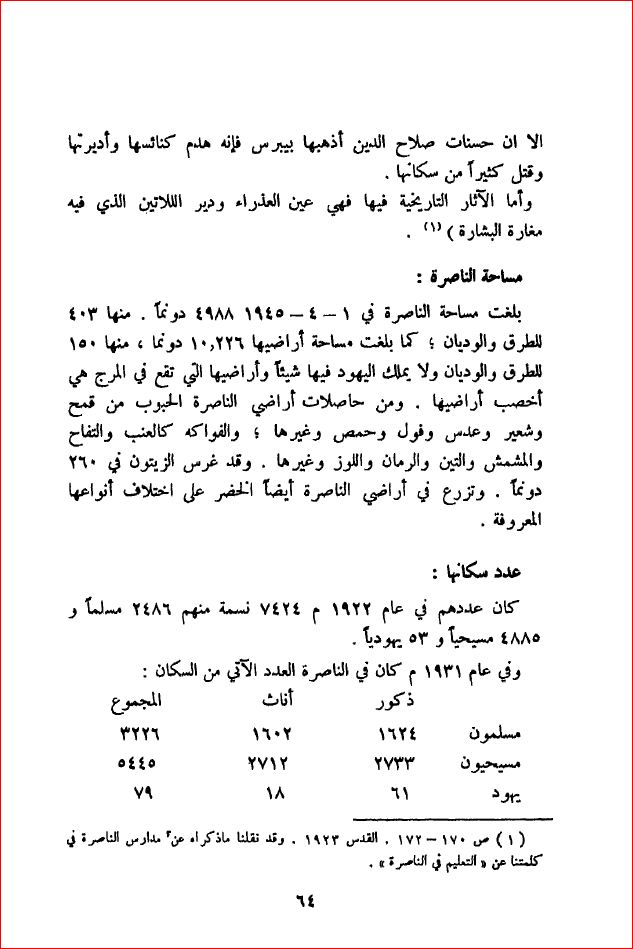 الا ان حسنات صلاح الدين أذهبها بيبرس فإنه هدم كنائسها وأديرتها
وقتل كثيراً من سكانها .
وأما الآثار التاريخية فيها فهي عين العذراء ودير اللاتين الذي فيه
مغارة البشارة ) (١) .
مساحة الناصرة :
بلغت مساحة الناصرة في ١ – ٤ – ١٩٤٥ ٤٩٨٨ دونماً . منها ٤٠٣
للطرق والوديان ؛ كما بلغت مساحة أراضيها ١٠,٢٢٦ دونما ، منها ١٥٠
للطرق والوديان ولا يملك اليهود فيها شيئاً وأراضيها التي تقع في المرج هي
أخصب أراضيها . ومن حاصلات أراضي الناصرة الحبوب من قمح
وشعير وعدس وفول وحمص وغيرها ؛ والفواكه كالعنب والتفاح
والمشمش والتين والرمان واللوز وغيرها . وقد غرس الزيتون في ٢٦٠
دونماً . وتزرع في أراضي الناصرة أيضاً الخضر على اختلاف أنواعها
المعروفة .
عدد سكانها :
كان عددهم في عام ١٩٢٢ م ٧٤٢٤ نسمة منهم ٢٤٨٦ مسلماً و
٤٨٨٥ مسيحياً و ٥٣ يهودياً .
وفي عام ١٩٣١ م كان في الناصرة العدد الآتي من السكان :
ذكور أناث المجموع
مسلمون ١٦٢٤ ١٦٠٢ ٣٢٢٦
مسيحيون ٢٧٣٣ ٢٧١٢ ٥٤٤٥
يهود ٦١ ١٨ ٧٩
(١) ص ١٧٠ – ١٧٢ . القدس ١٩٢٣ . وقد نقلنا ماذكراه عن مدارس الناصرة في
كلمتنا عن « التعليم في الناصرة » .
٦٤